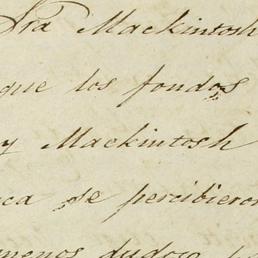 Sra Mackintosh
que los fondos
y Mackintosh
se percibieron
menos dudoso